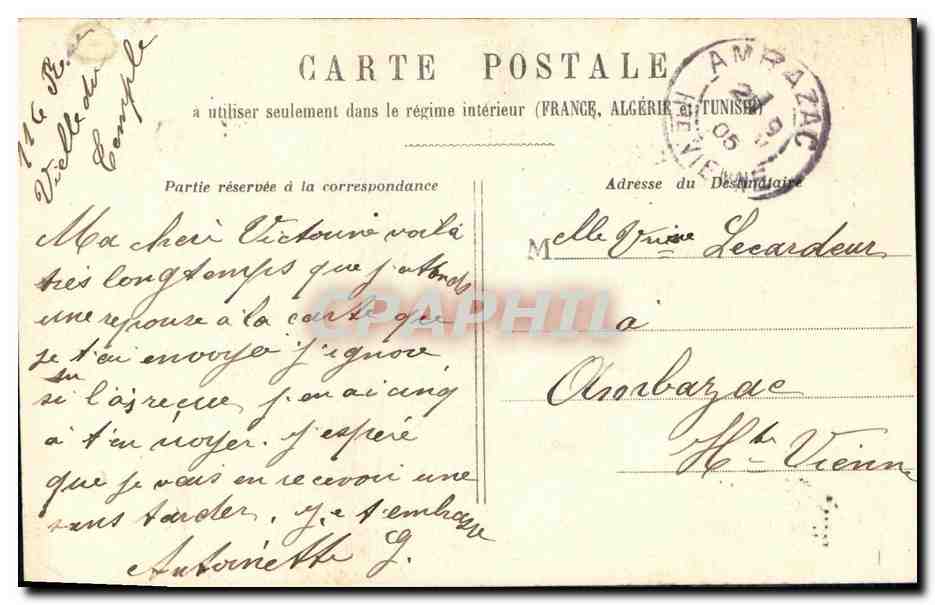 116 R.
Vielle du
Temple
CARTE POSTALE
à utiliser seulement dans le régime intérieur (FRANCE, ALGÉRIE et TUNISIE)
AMBAZAC
2 1
9
05
HTE VIENNE
Partie réservée à la correspondance
Adresse du Destinataire
Ma cheri Victorine voilà
très longtemps que j'attends
une reponse à la carte que
je t'ai envoyer j'ignore
si tu l'as reçue j'en ai cinq
à t'en noyer. j'espére
que je vais en recevoir une
sans tarder. Je t'embrasse
Antoinette G.
Melle Vrine Lecardeur
à
Ambazac
Hte Vienne
CPAPHIL